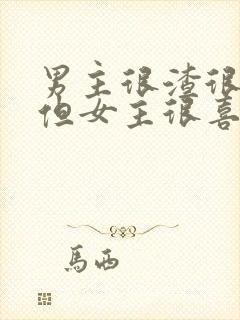 男主很渣很
但女主很喜
馬西